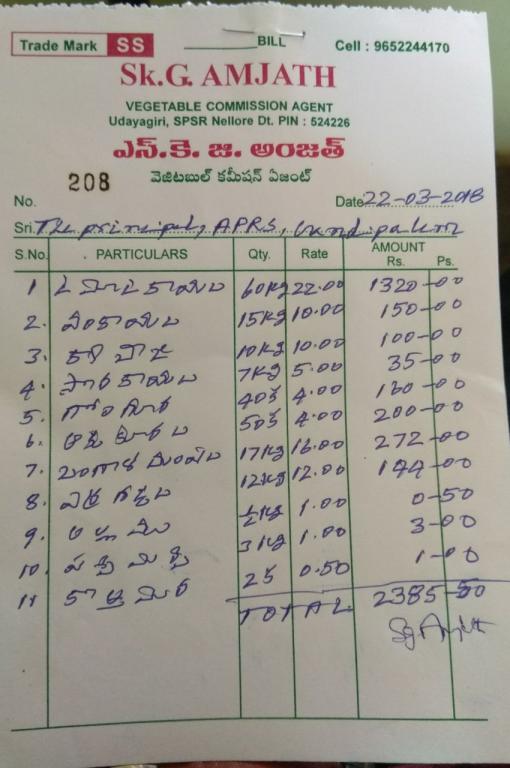 Trade Mark SS ________BILL Cell : 9652244170
Sk.G. AMJATH
VEGETABLE COMMISSION AGENT
Udayagiri, SPSR Nellore Dt. PIN : 524226
ఎస్.కె. జి. అంజత్
వెజిటబుల్ కమీషన్ ఏజంట్
No. 208 Date 22-03-2018
Sri. The principal, APRS,
S.No. PARTICULARS Qty. Rate AMOUNT Rs. Ps.
1 60kg 22.00 1320-00
2. వంకాయలు 15kg 10.00 150-00
3. 10kg 10.00 100-00
4. సొరకాయలు 7kg 5.00 35-00
5. గోంగూర 40క 4.00 160-00
6. ఆకు కూరలు 50క 4.00 200-00
7. బంగాళ దుంపలు 17kg 16.00 272-00
8. ఎర్ర గడ్డలు 12kg 12.00 144-00
9. అల్లం ½kg 1.00 0-50
10. పచ్చి మిర్చి 3kg 1.00 3-00
11 కొత్తిమీర 2క 0.50 1-00
TOTAL 2385-50